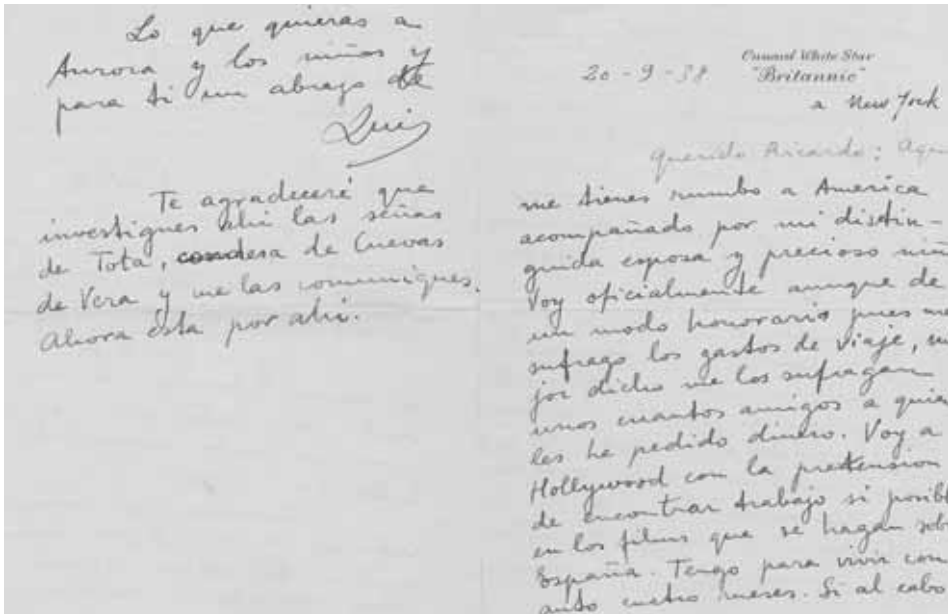 Lo que quieras a
Aurora y los niños y
para ti un abrazo de
Luis
Te agradeceré que
investigues ahi las señas
de Tota, condesa de Cuevas
de Vera y me las comuniques.
Ahora está por ahi.
Cunard White Star
"Britannic"
20-9-38
a New York
Querido Ricardo: Aqu
me tienes rumbo a America
acompañado por mi distin-
guida esposa y precioso niñ
Voy oficialmente aunque de
un modo honorario pues me
sufrago los gastos de viaje, m
jor dicho me los sufragan
unos cuantos amigos a quie
les he pedido dinero. Voy a
Hollywood con la pretension
de encontrar trabajo si posibl
en los films que se hagan sob
España. Tengo para vivir con
auto cuatro meses. Si al cabo